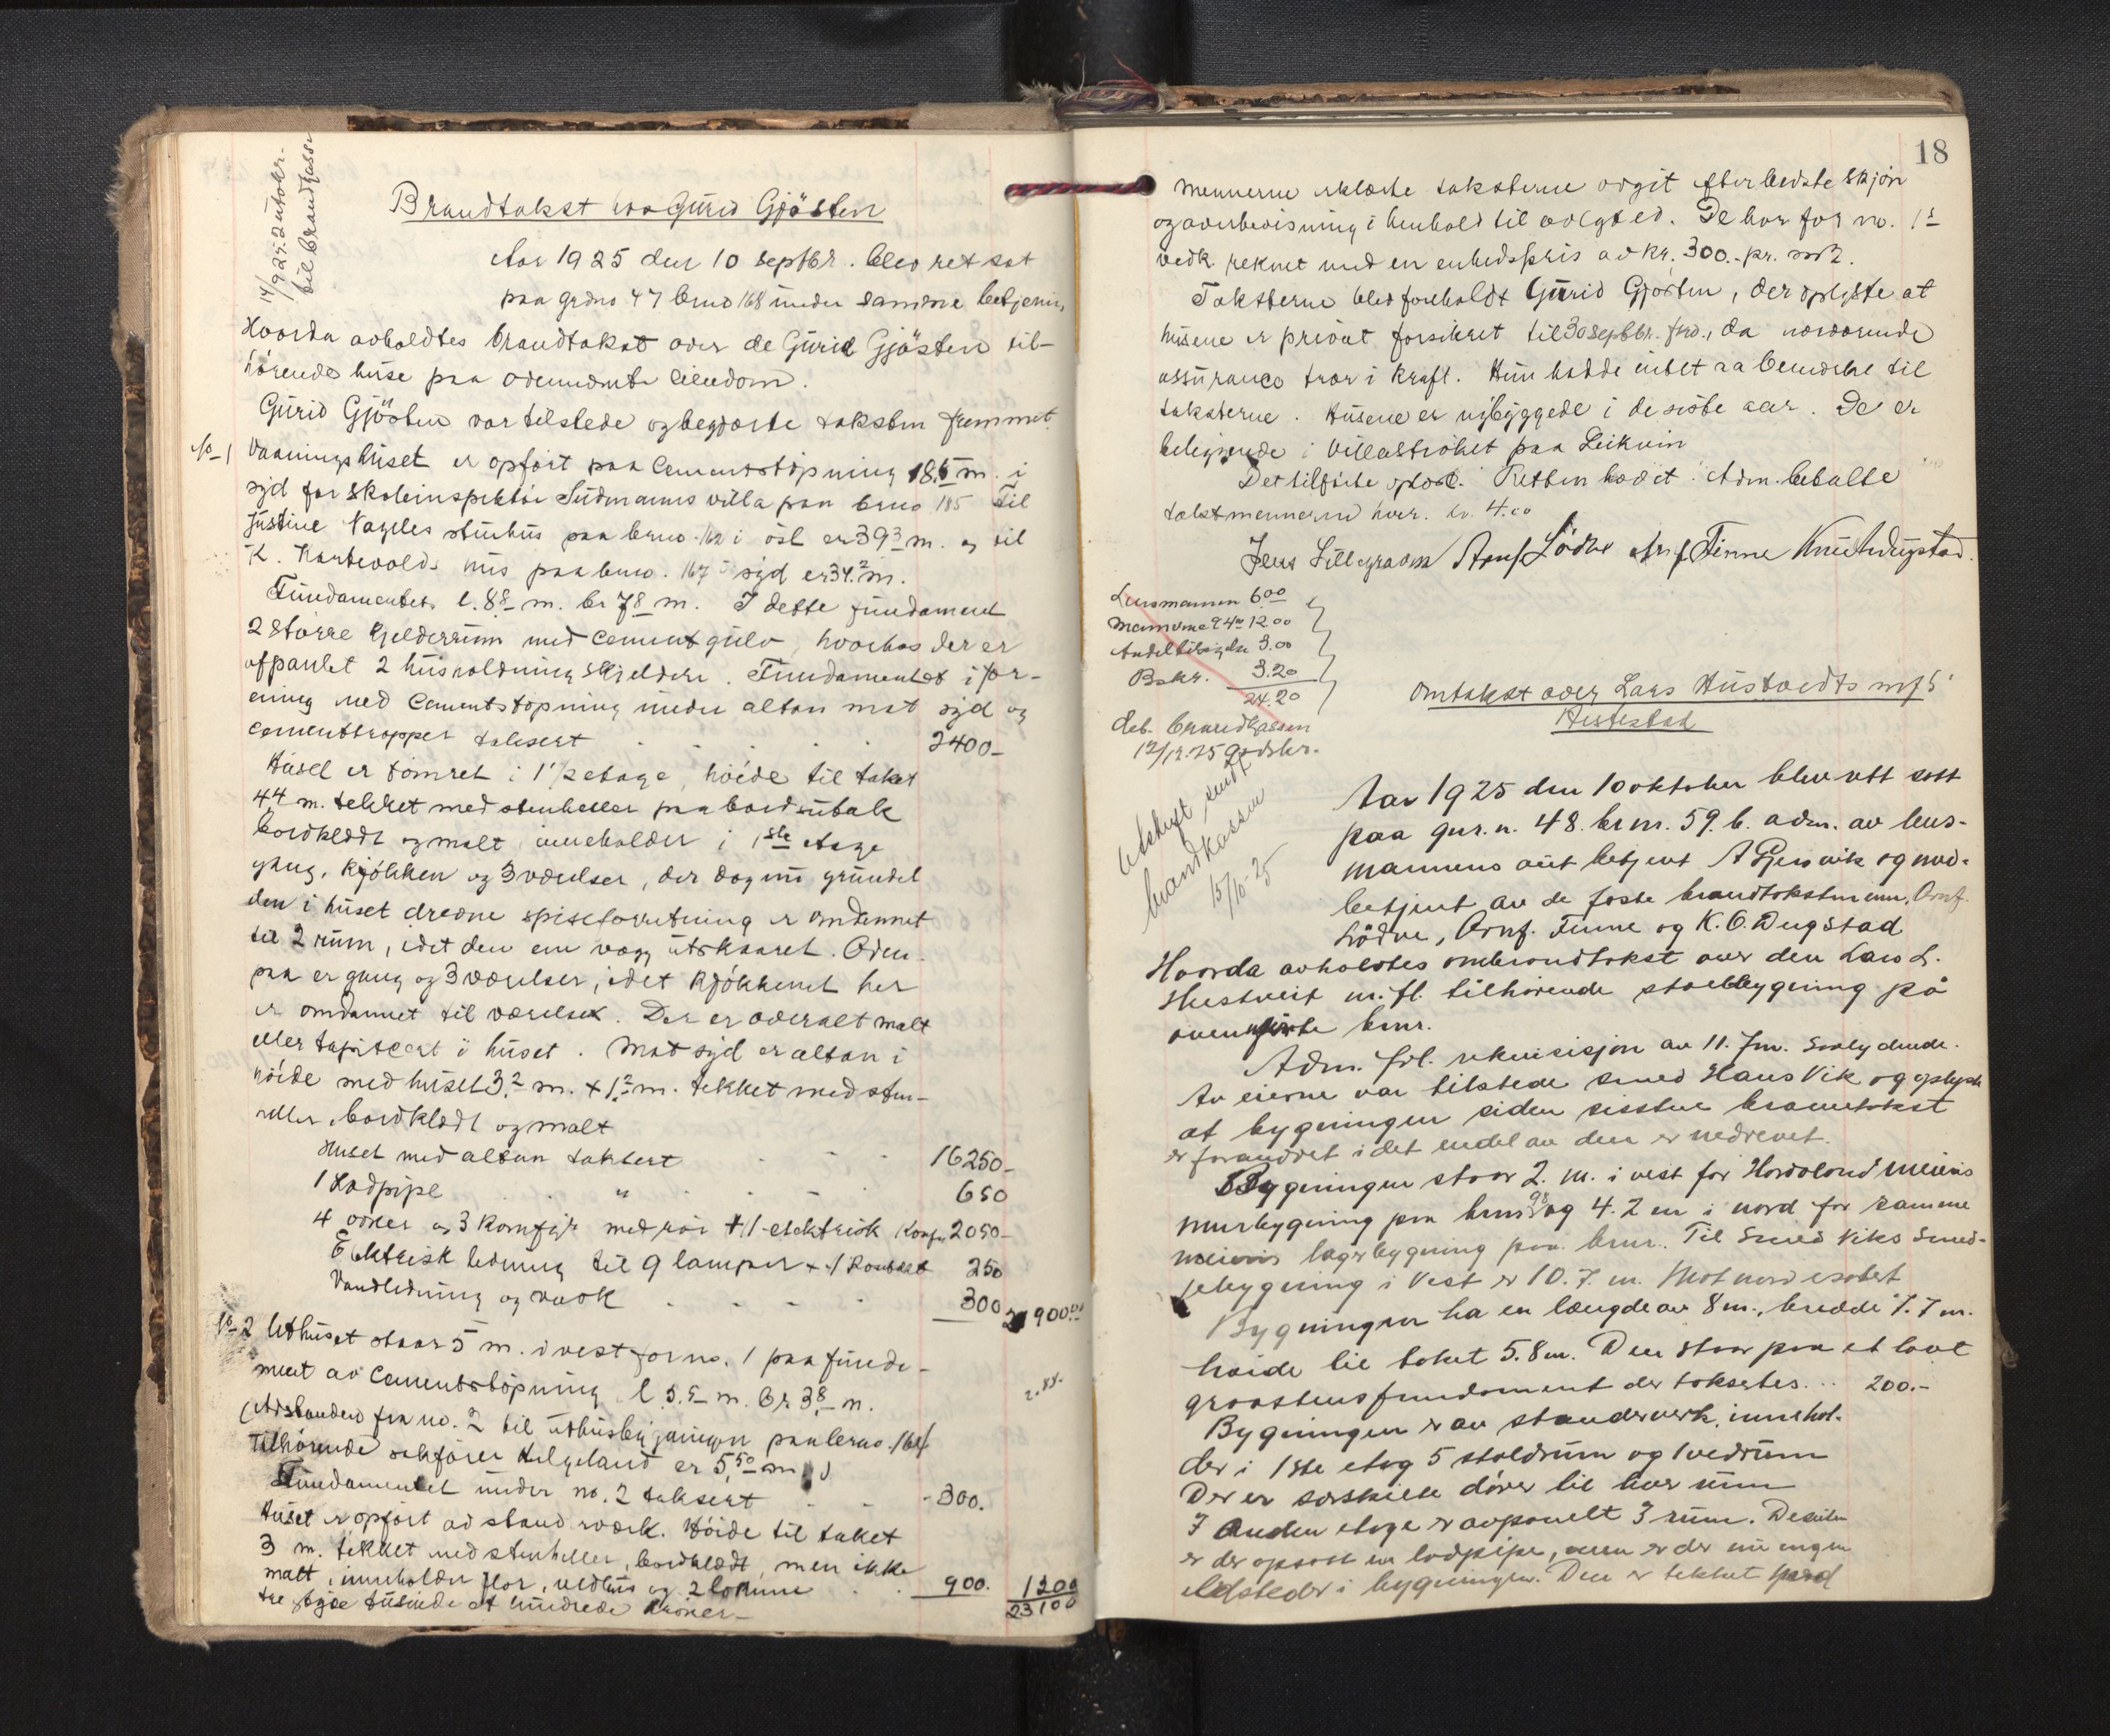 Brandtakst hos Gurid Gjösten
14/9 25. 2 utskr.
til brandkassen
Aar 1925 den 10 septbr. blev ret sat
paa grdno 47 bruno 168 under samme betjening
Hvorda avholdtes brandtakst over de Gurid Gjösten til-
hörende huse paa ovennævnte eiendom.
Gurid Gjösten var tilstede og begjærte taksten fremmet.
No 1 Vaaningshuset er opført paa Cementstöpning 18.5 m. i
syd for skoleinspektör Sudmanns villa paa bruno 185 Til
Justine Nageles stuehus paa bruno. 162 i öst er 39.3 m. og til
K. Kartevolds hus paa bruno. 167 i syd er 34.2 m.
Fundamentets l. 8.8 m. br 7.8 m. I dette fundament
2 större kjelderrum med cementgulv, hvorhos der er
afpanlet 2 husholdningskjeldere. Fundamentet i for-
ening med Cementstöpning under altan mot syd og
cementtrapper taksert . . . . 2400-
Huset er tömret i 1 1/2 etage, höide til taket
4.4 m. tekket med stenheller paa bord utak
bordklædt og malt, inneholder i 1ste etage
gang, kjökken og 3 værelser, der dog nu grundet
den i huset drevne spiseforretning er omdannet
til 2 rum, idet den ene væg utskaaret. Oven-
paa er gang og 3 værelser, idet kjökkenet her
er omdannet til værelse. Der er overalt malt
eller tapisert i huset. Mot syd er altan i
höide med huset 3.2 m. + 1.2 m. tekket med sten-
heller, bordklædt og malt
Huset med altan taksert . . . 16250-
1 Lodpipe . . " . . . 650
4 ovner og 3 komfyr med rör + 1 elektrisk Komfyr 2050-
Elektrisk ledning til 9 lamper + 1 250
Vandledning og vask . . . . 300 21900.00
No 2 Uthuset staar 5 m. i vest for no. 1 paa funda-
ment av Cementstöpning l 5.5 m. br 3.8 m.
(Avstanden fra no. 2 til uthusbygningen paa bruno. 164
tilhörende Helgeland er 5.50 m)
Fundamentet under no. 2 taksert . . . 300.
Huset er opfört av stand værk. Höide til taket
3 m. tekket med stenheller, bordklædt, men ikke
malt, inneholder flor, vedhus og 2 lokume . . 900. 1200
tre og tyve tusinde et hundrede kroner- 23100
18
mennerne erklærte taksterne avgit efter bedste skjön
og overbevisning i henhold til avlagt ed. De har for no. 1s
vedk. reknet med en enhedspris av kr. 300.- pr. m2.
Taksterne blev foreholdt Gurid Gjosten, der oplyste at
husene er privat forsikret til 30 septbr. , da nærværende
assurance træer i kraft. Hun hadde intet aa bemerke til
taksterne. Husene er nybyggede i de siste aar. De er
beliggende i villaströket paa Leikvin
Det tilførte oplæst. Retten hævet. Adm. betalte
takstmennerne hver. kr. 4.00
Jens Lillegraven Arnf Lödve Arnf. Finne Knut Dugstad.
Lensmannen 6.00
Mennerne á 4.00 12.00
3.00
Bokr. 3.20
24.20
deb. brandkassen
12/12.25
Utskrift sendt
brandkassen
15/10-25
Omtakst over Lars Hustvedts m fl
Hestestal
Aar 1925 den 10 oktober blev rett satt
paa gnr. n. 48. br nr. 59. b. adm. av lens-
mannens aut betjent A Gjersvik og med-
betjent av de faste brandtakstmenn, Arnf.
Lödve, Arnf. Finne og K. O. Dugstad
Hvorda avholdtes ombrandtakst over den Lars L.
Hustveit m. fl. tilhörende stallbygning på
ovennevnte brnr.
Adm. frl. rekvisisjon av 11. f.m. saalydende.
Av eierne var tilstede smed Hans Vik og oplyste
at bygningen siden sisste brandtakst
er forandret idet endel av den er nedrevet.
Bygningen staar 2. m. i vest for Hordaland meieris
murbygning paa brnr 98 og 4.2 m i nord for samme
meieris lagerbygning paa brnr. Til Smed Viks Smed-
jebygning i Vest er 10.7. m. Mot nord isolert
Bygningen ha en længde av 8 m., bredde 7.7 m.
høide til taket 5.8 m. Den staar paa et lavt
graastensfundament der takseres... 200.-
Bygningen er av standerverk, innehol-
der i 1ste etag 5 staldrum og 1 vedrum
Der er særskilte dörer til hver rum
I Anden etage er avpanelt 3 rum. Desuten
er der opsatt en lodpipe, men er der nu ingen
ildsteder i bygningen. Den er tekket med